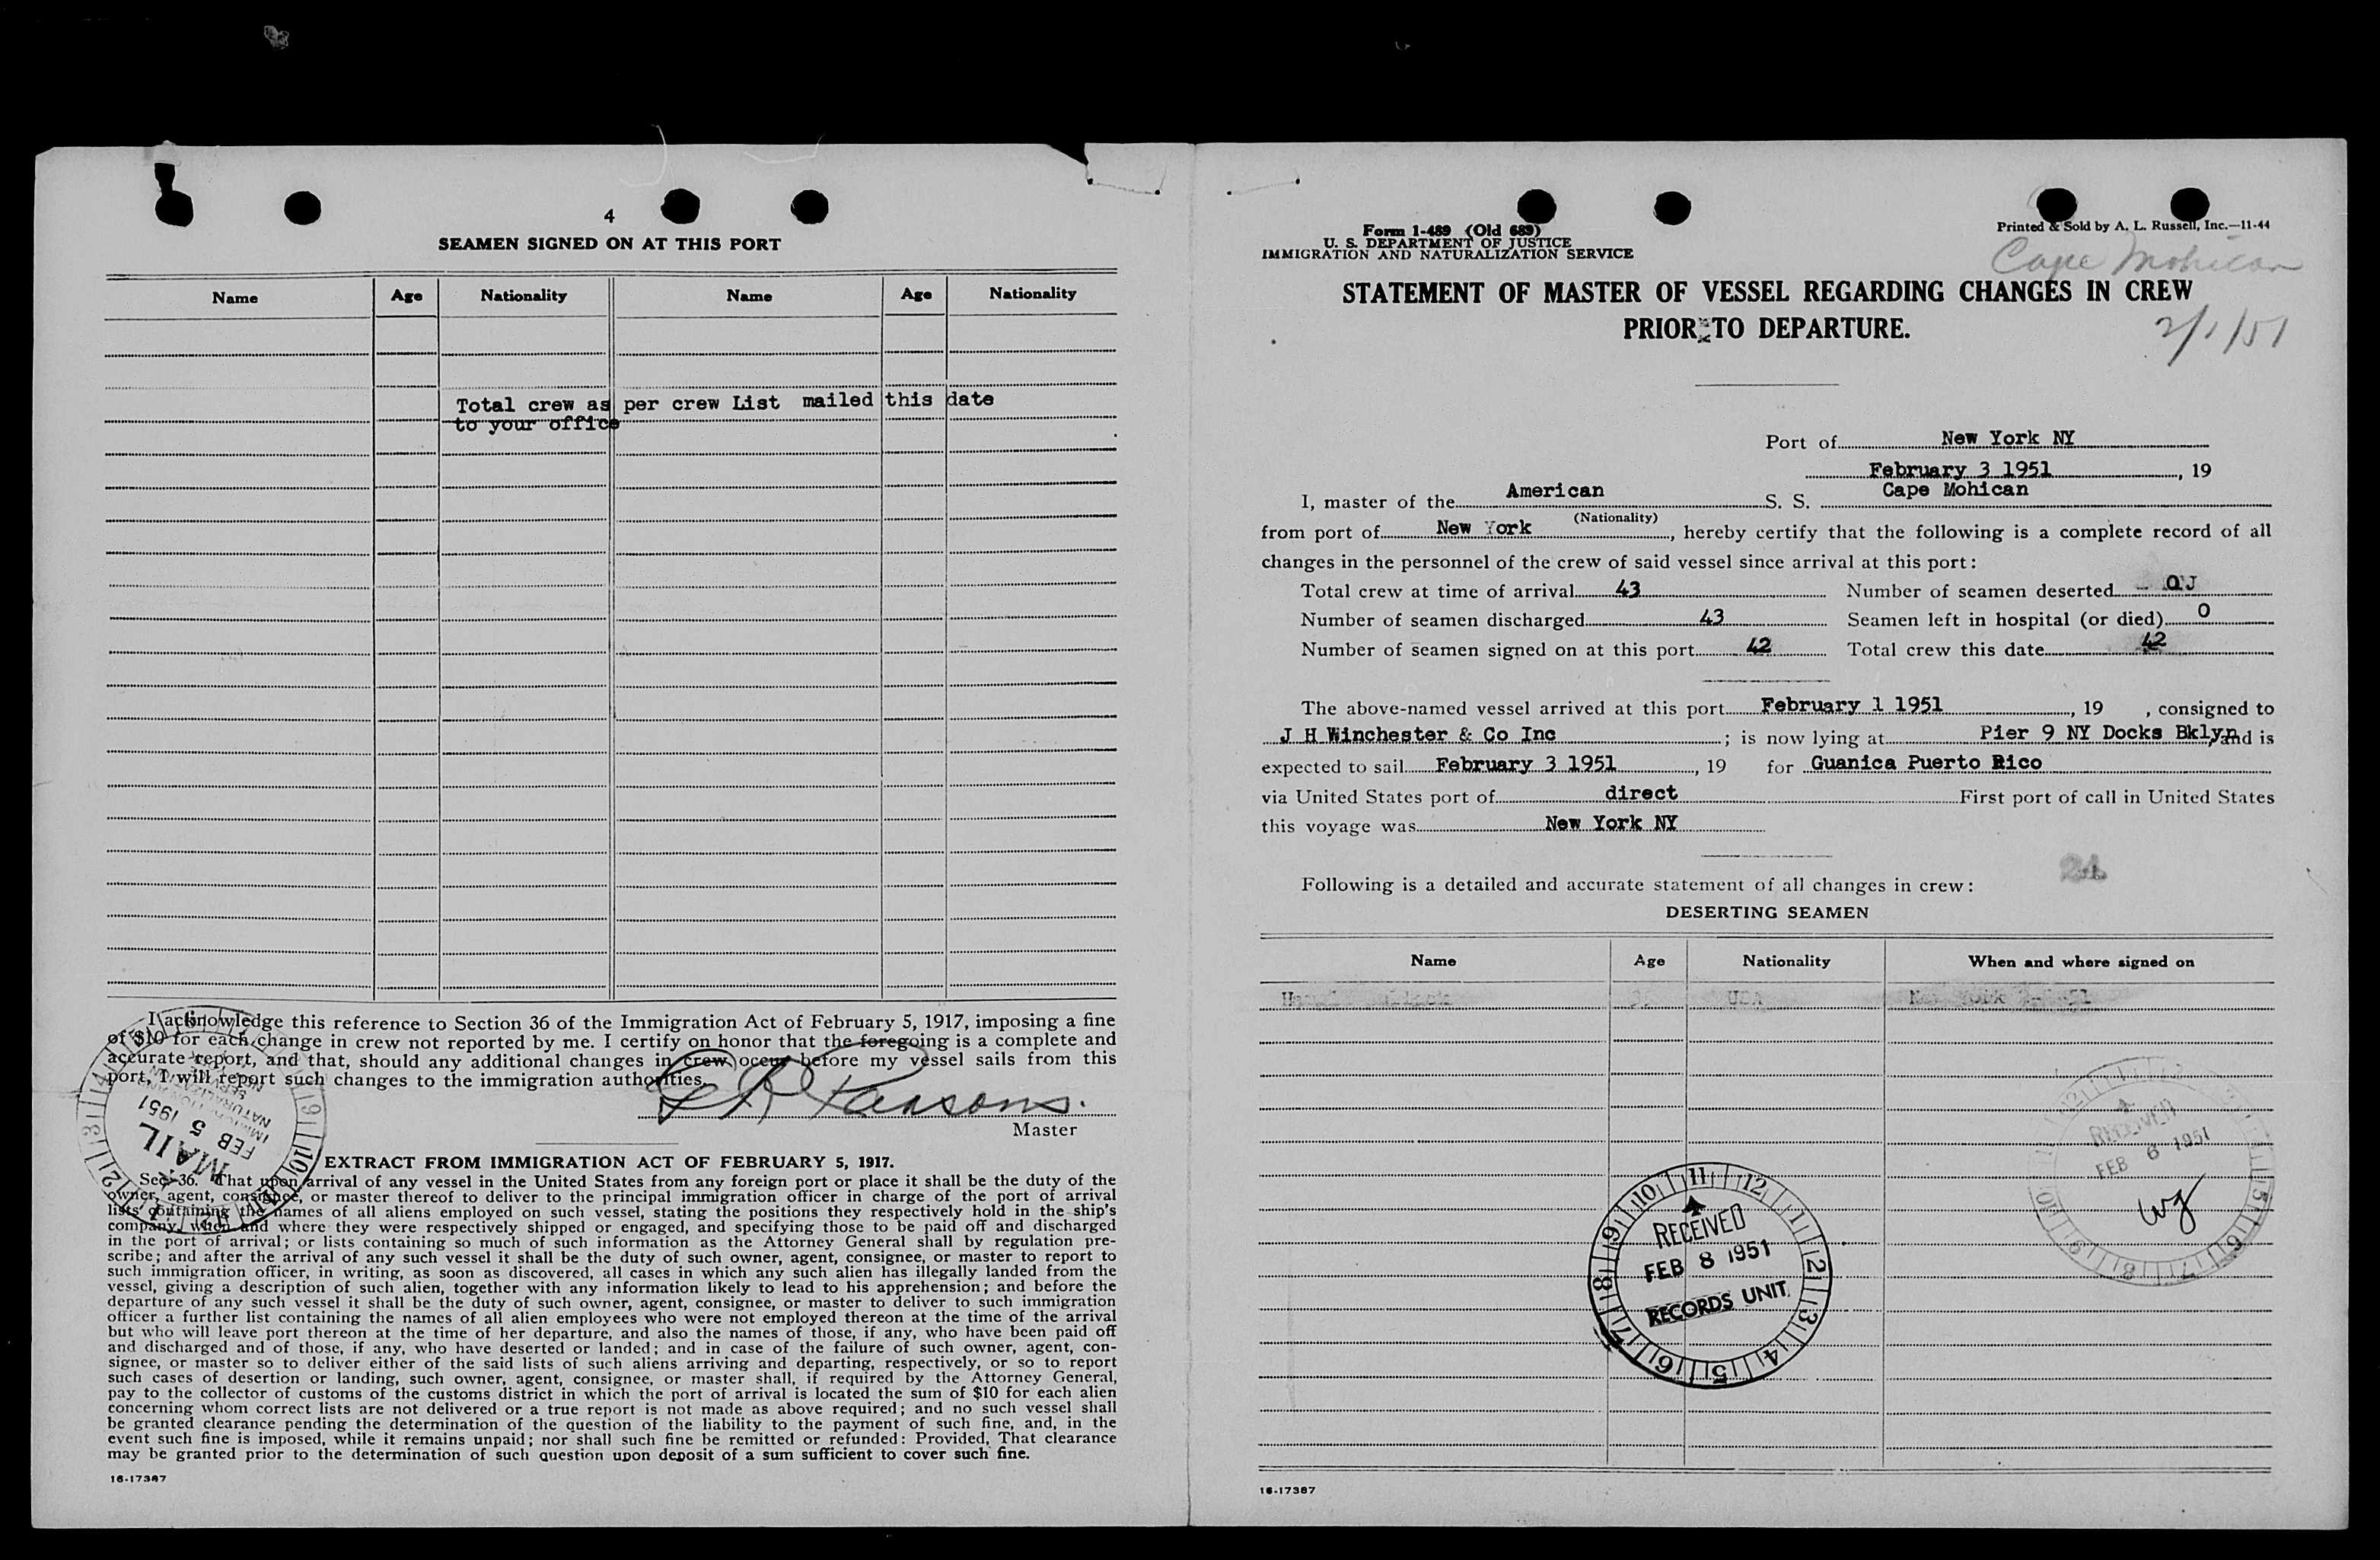 4
SEAMEN SIGNED ON AT THIS PORT
Name Age Nationality Name Age Nationality
Total crew as per crew List mailed this date
to your office
I acknowledge this reference to Section 36 of the Immigration Act of February 5, 1917, imposing a fine
of $10 for each change in crew not reported by me. I certify on honor that the foregoing is a complete and
accurate report, and that, should any additional changes in crew occur before my vessel sails from this
port, I will report such changes to the immigration authorities.
Parsons.
Master
MAIL
FEB 5 1951
EXTRACT FROM IMMIGRATION ACT OF FEBRUARY 5, 1917.
Sec. 36. That upon arrival of any vessel in the United States from any foreign port or place it shall be the duty of the
owner, agent, consignee, or master thereof to deliver to the principal immigration officer in charge of the port of arrival
lists containing the names of all aliens employed on such vessel, stating the positions they respectively hold in the ship's
company, when and where they were respectively shipped or engaged, and specifying those to be paid off and discharged
in the port of arrival; or lists containing so much of such information as the Attorney General shall by regulation pre-
scribe; and after the arrival of any such vessel it shall be the duty of such owner, agent, consignee, or master to report to
such immigration officer, in writing, as soon as discovered, all cases in which any such alien has illegally landed from the
vessel, giving a description of such alien, together with any information likely to lead to his apprehension; and before the
departure of any such vessel it shall be the duty of such owner, agent, consignee, or master to deliver to such immigration
officer a further list containing the names of all alien employees who were not employed thereon at the time of the arrival
but who will leave port thereon at the time of her departure, and also the names of those, if any, who have been paid off
and discharged and of those, if any, who have deserted or landed; and in case of the failure of such owner, agent, con-
signee, or master so to deliver either of the said lists of such aliens arriving and departing, respectively, or so to report
such cases of desertion or landing, such owner, agent, consignee, or master shall, if required by the Attorney General,
pay to the collector of customs of the customs district in which the port of arrival is located the sum of $10 for each alien
concerning whom correct lists are not delivered or a true report is not made as above required; and no such vessel shall
be granted clearance pending the determination of the question of the liability to the payment of such fine, and, in the
event such fine is imposed, while it remains unpaid; nor shall such fine be remitted or refunded: Provided, That clearance
may be granted prior to the determination of such question upon deposit of a sum sufficient to cover such fine.
16-17387
Form 1-489 (Old 689)
U. S. DEPARTMENT OF JUSTICE
IMMIGRATION AND NATURALIZATION SERVICE
Printed & Sold by A. L. Russell, Inc.—11-44
Cape Mohican
STATEMENT OF MASTER OF VESSEL REGARDING CHANGES IN CREW
PRIOR TO DEPARTURE.
2/1/51
Port of New York NY
February 3 1951, 19
I, master of the American S. S. Cape Mohican
(Nationality)
from port of New York, hereby certify that the following is a complete record of all
changes in the personnel of the crew of said vessel since arrival at this port:
Total crew at time of arrival 43 Number of seamen deserted
Number of seamen discharged 43 Seamen left in hospital (or died) 0
Number of seamen signed on at this port 42 Total crew this date 42
The above-named vessel arrived at this port February 1 1951, 19 , consigned to
J H Winchester & Co Inc ; is now lying at Pier 9 NY Docks Bklyn, and is
expected to sail February 3 1951, 19 for Guanica Puerto Rico
via United States port of direct First port of call in United States
this voyage was New York NY
Following is a detailed and accurate statement of all changes in crew:
DESERTING SEAMEN
Name Age Nationality When and where signed on
USA
RECEIVED
FEB 6 1951
RECEIVED
FEB 8 1951
RECORDS UNIT
16-17387